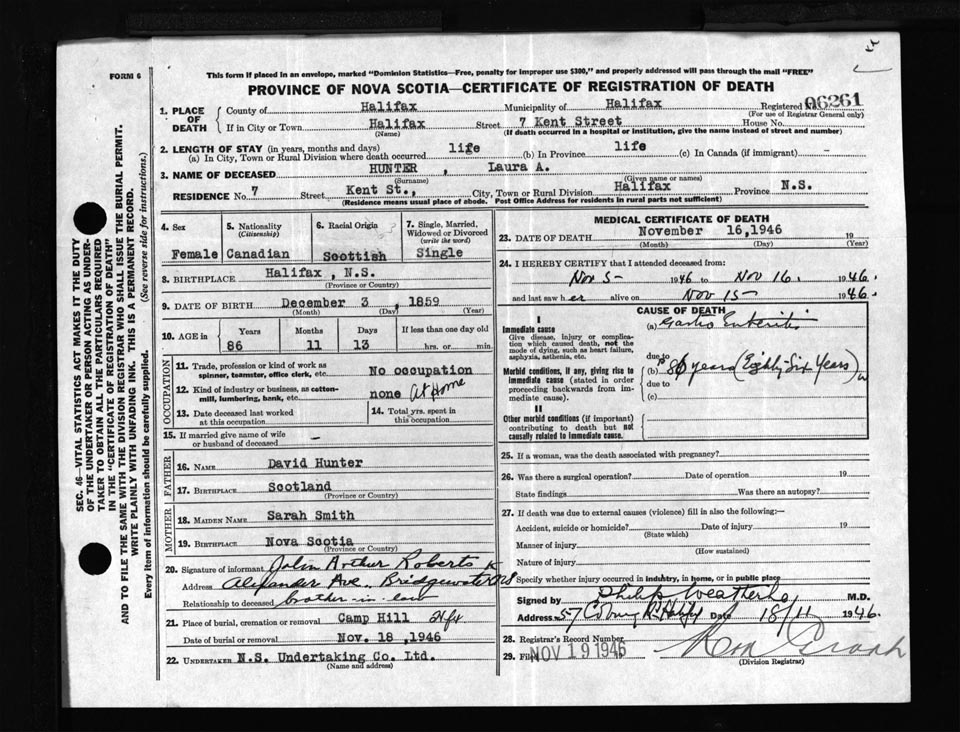 FORM 6
This form if placed in an envelope, marked "Dominion Statistics—Free, penalty for improper use $300," and properly addressed will pass through the mail "FREE"
PROVINCE OF NOVA SCOTIA—CERTIFICATE OF REGISTRATION OF DEATH
1. PLACE OF DEATH County of Halifax Municipality of Halifax Registered 06261
(For use of Registrar General only)
If in City or Town Halifax Street 7 Kent Street House No.
(Name) (If death occurred in a hospital or institution, give the name instead of street and number)
2. LENGTH OF STAY (in years, months and days)
(a) In City, Town or Rural Division where death occurred life (b) In Province life (c) In Canada (if immigrant) –
3. NAME OF DECEASED HUNTER, Laura A.
(Surname) (Given name or names)
RESIDENCE No. 7 Street Kent St., City, Town or Rural Division Halifax Province N.S.
(Residence means usual place of abode. Post Office Address for residents in rural parts not sufficient)
4. Sex 5. Nationality (Citizenship) 6. Racial Origin 7. Single, Married, Widowed or Divorced (write the word)
Female Canadian Scottish Single
8. BIRTHPLACE Halifax, N.S.
(Province or Country)
9. DATE OF BIRTH December 3, 1859
(Month) (Day) (Year)
10. AGE in Years Months Days If less than one day old
86 11 13 hrs. or min.
OCCUPATION
11. Trade, profession or kind of work as spinner, teamster, office clerk, etc. No occupation
12. Kind of industry or business, as cotton-mill, lumbering, bank, etc. none at Home
13. Date deceased last worked at this occupation
14. Total yrs. spent in this occupation
15. If married give name of wife or husband of deceased –
FATHER
16. NAME David Hunter
17. BIRTHPLACE Scotland
(Province or Country)
MOTHER
18. MAIDEN NAME Sarah Smith
19. BIRTHPLACE Nova Scotia
(Province or Country)
20. Signature of informant John Arthur Roberts
Address Alexander Ave. Bridgewater NS
Relationship to deceased brother-in-law
21. Place of burial, cremation or removal Camp Hill Hfx
Date of burial or removal Nov. 18, 1946
22. UNDERTAKER N.S. Undertaking Co. Ltd.
(Name and address)
MEDICAL CERTIFICATE OF DEATH
23. DATE OF DEATH November 16, 1946 19
(Month) (Day) (Year)
24. I HEREBY CERTIFY that I attended deceased from:
Nov 5- 1946 to Nov 16. 1946.
and last saw her alive on Nov 15- 1946.
CAUSE OF DEATH
I
Immediate cause
Give disease, injury or complication which caused death, not the mode of dying, such as heart failure, asphyxia, asthenia, etc.
(a) Gastro Enteritis
due to
Morbid conditions, if any, giving rise to immediate cause (stated in order proceeding backwards from immediate cause).
(b) 86 years (Eighty Six Years)
due to
(c)
II
Other morbid conditions (if important) contributing to death but not causally related to immediate cause.
25. If a woman, was the death associated with pregnancy?
26. Was there a surgical operation? Date of operation 19
State findings Was there an autopsy?
27. If death was due to external causes (violence) fill in also the following:—
Accident, suicide or homicide? Date of injury 19
(State which)
Manner of injury
(How sustained)
Nature of injury
Specify whether injury occurred in industry, in home, or in public place
Signed by Philip Weatherbe M.D.
Address 57 Coburg Rd Halifax Date 18/11 1946.
28. Registrar's Record Number
29. Filed NOV 19 1946
(Division Registrar)
SEC. 46—VITAL STATISTICS ACT MAKES IT THE DUTY
OF THE UNDERTAKER OR PERSON ACTING AS UNDERTAKER
TO OBTAIN ALL THE PARTICULARS REQUIRED
IN THE "CERTIFICATE OF REGISTRATION OF DEATH"
AND TO FILE THE SAME WITH THE DIVISION REGISTRAR WHO SHALL ISSUE THE BURIAL PERMIT.
WRITE PLAINLY WITH UNFADING INK. THIS IS A PERMANENT RECORD.
Every item of information should be carefully supplied. (See reverse side for instructions.)